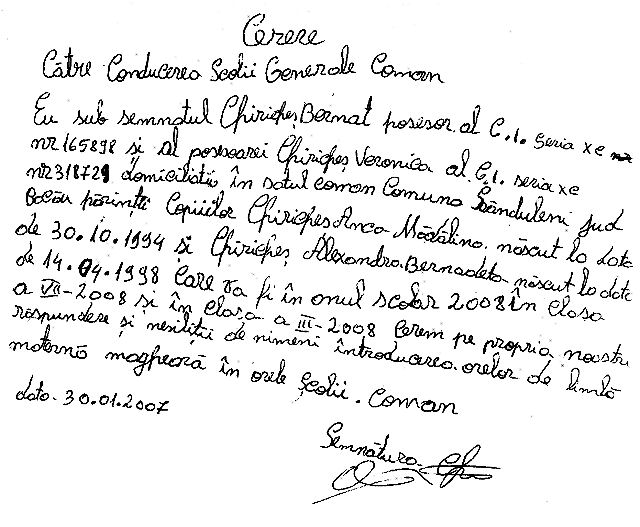 Cerere
Către Conducerea Școlii Generale Coman
Eu sub semnatul Chiricheș Bernat posesor al C.I. seria xc
nr 165898 și al posesoarei Chiricheș Veronica al C.I. seria xc
nr 318729 domiciliați în satul coman Comuna Sănduleni jud
Bacău părinții Copiilor Chiricheș Anca Mădălina născut la data
de 30.10.1994 și Chiricheș Alexandra Bernadeta născut la data
de 14.04.1998 Care va fi în anul școlar 2008 în Clasa
a VII-2008 și în clasa a III-2008 Cerem pe propria noastră
răspundere și nesiliții de nimeni întroducerea orelor de limbă
maternă magheară în orele școlii. Coman
data. 30.01.2007
Semnătura